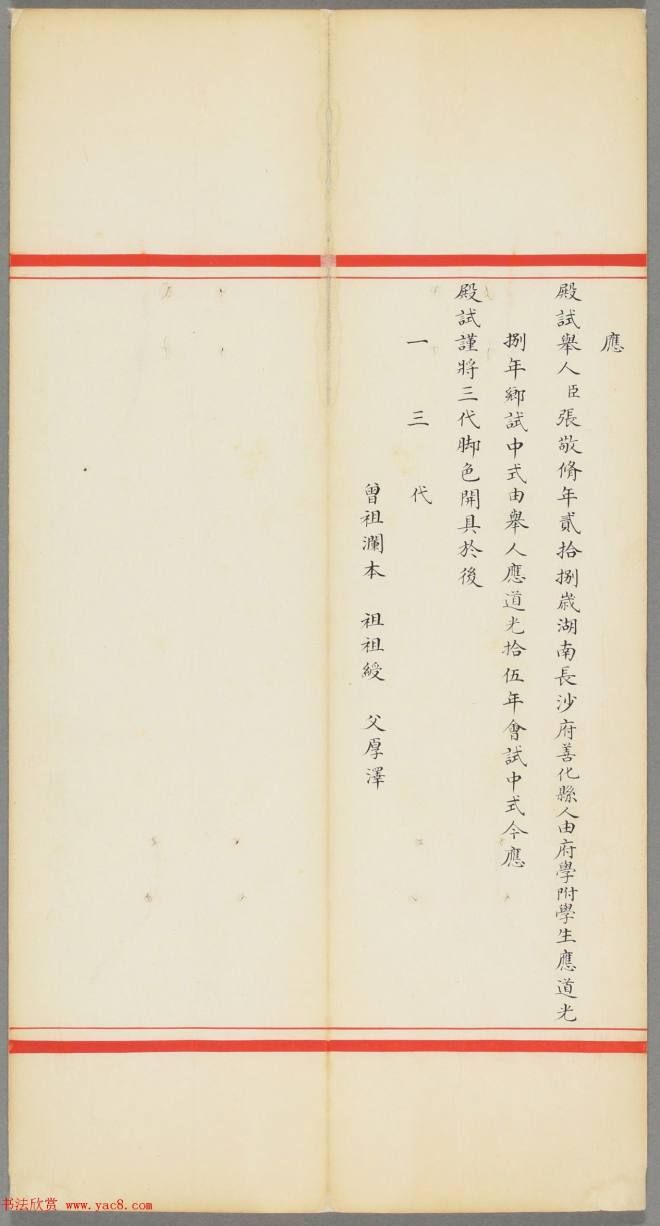 應
殿試舉人臣張敬脩年貳拾捌歲湖南長沙府善化縣人由府學附學生應道光
捌年鄉試中式由舉人應道光拾伍年會試中式今應
殿試謹將三代脚色開具於後
一三代
曾祖瀾本 祖祖綬 父厚澤
书法欣赏 www.yac8.com